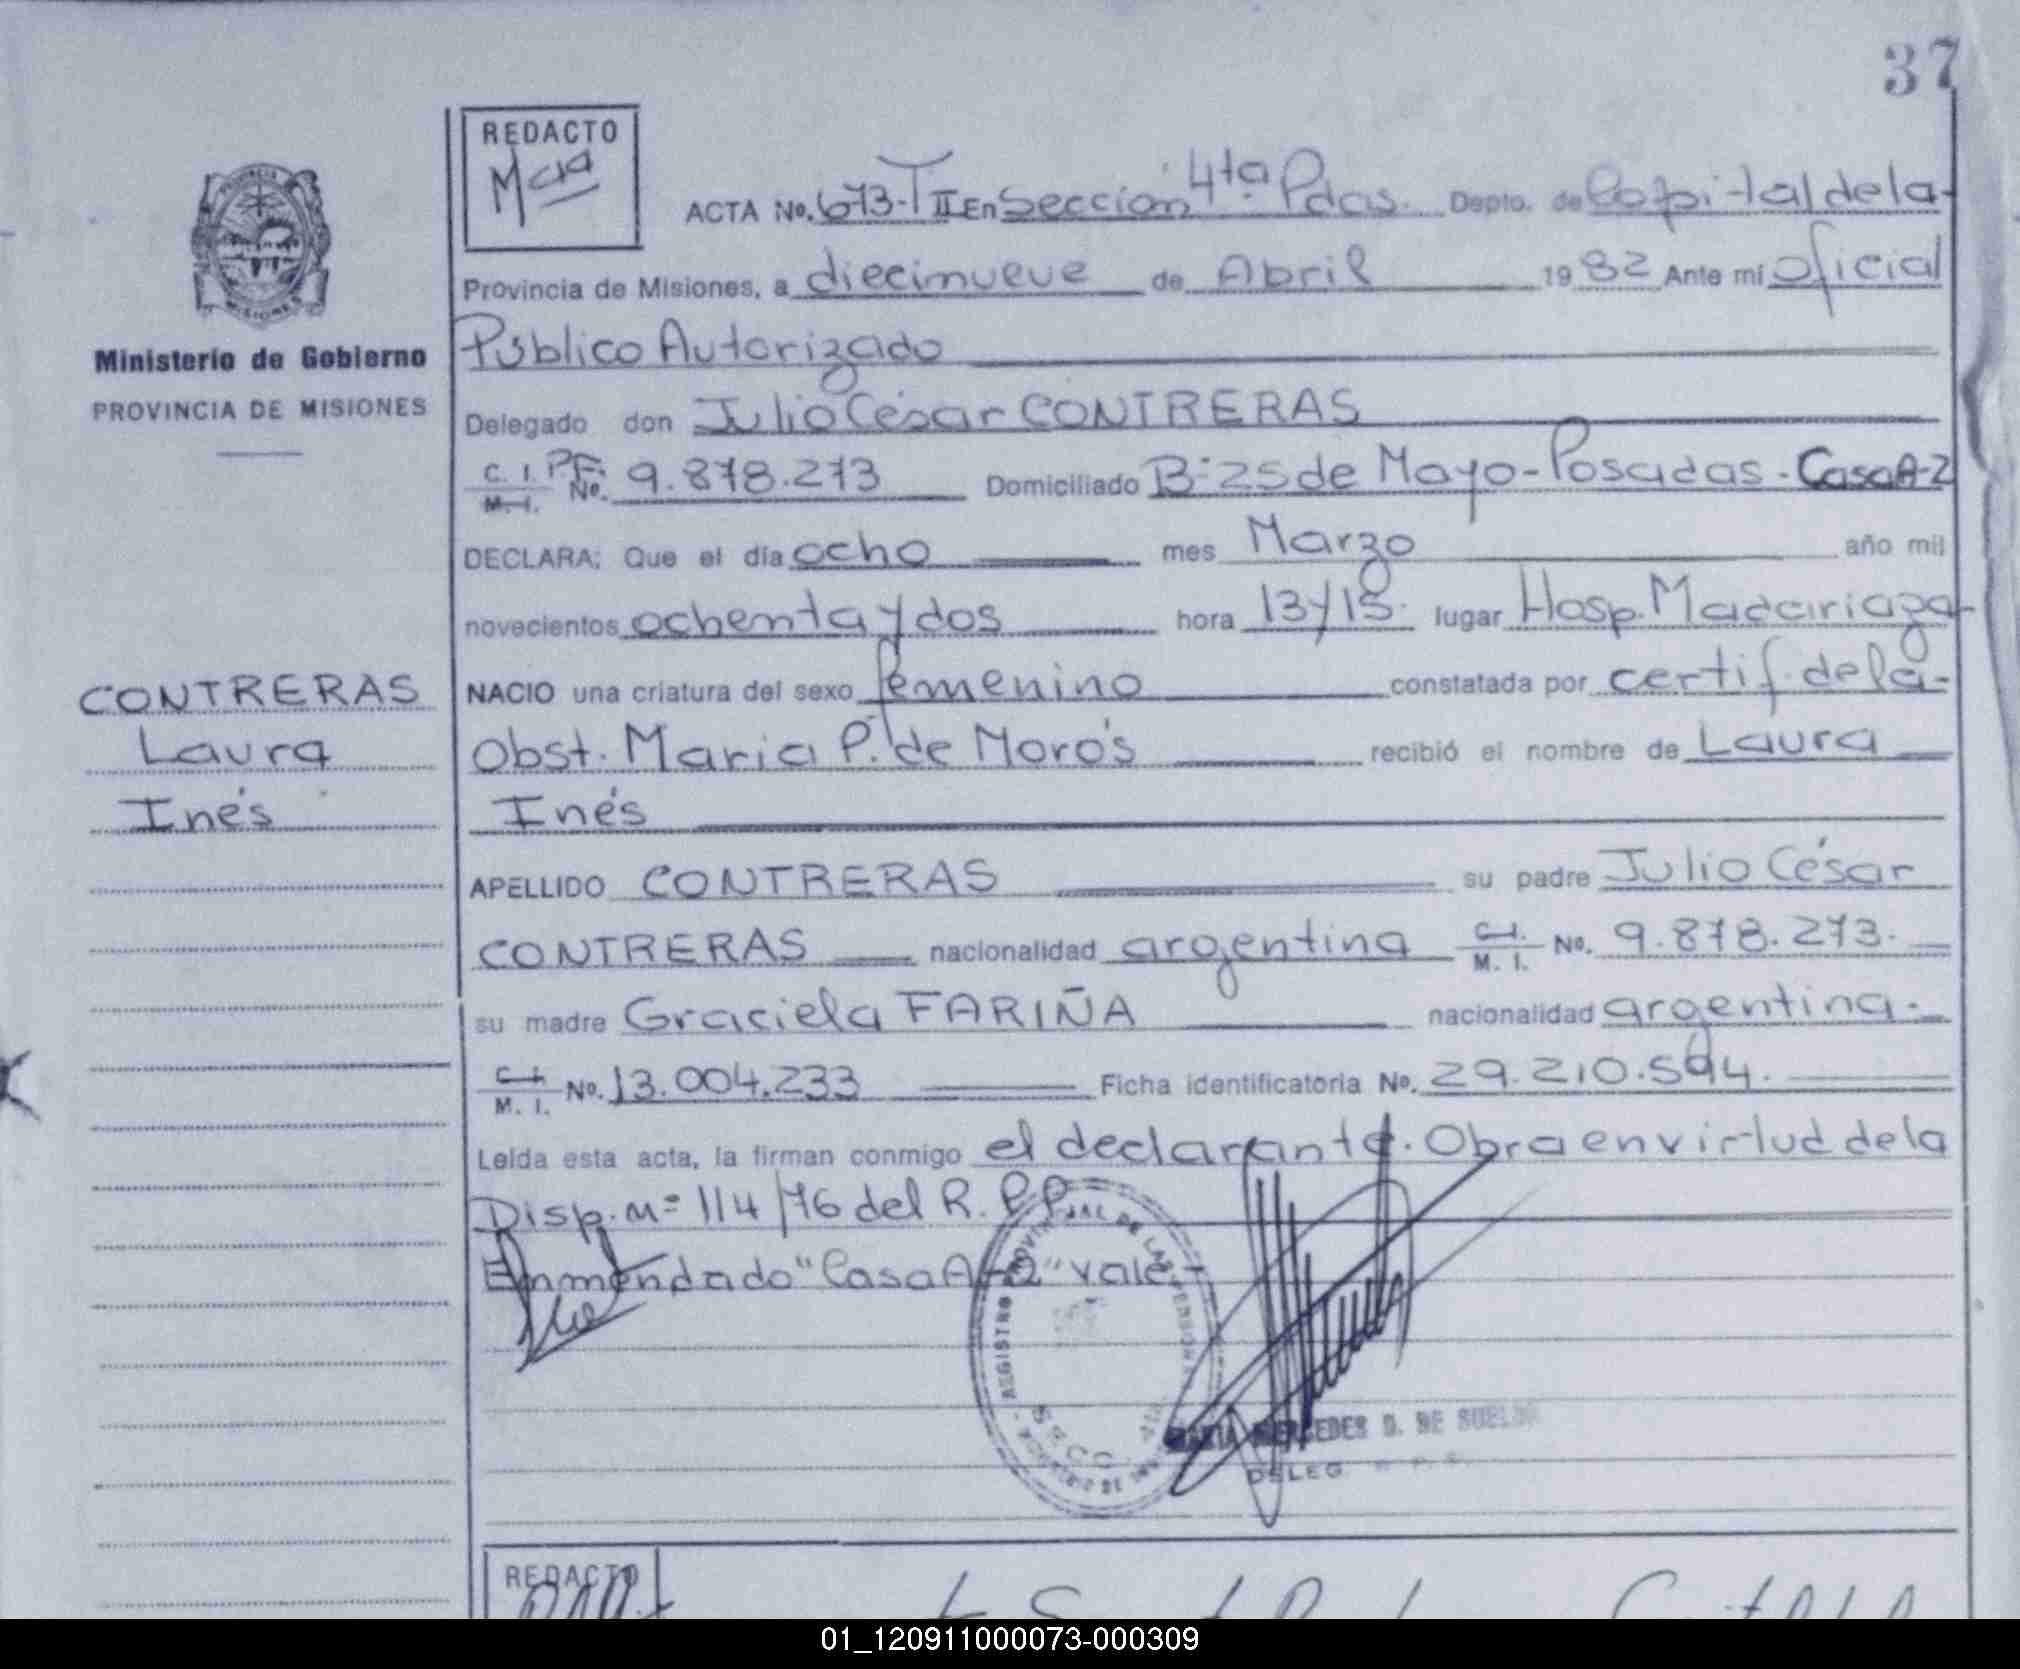 37
REDACTO
Mcia
ACTA No. 673-T II En Sección 4ta Pdas. Depto. de Capital de la
Provincia de Misiones, a diecinueve de Abril 1982 Ante mí Oficial
Público Autorizado
Ministerio de Gobierno
PROVINCIA DE MISIONES
Delegado don Julio César CONTRERAS
C. I. P.F. M. I. No. 9.878.273 Domiciliado B: 25 de Mayo - Posadas - Casa A-2
DECLARA: Que el día ocho mes Marzo año mil
novecientos ochenta y dos hora 13/15 lugar Hosp. Madariaga
NACIO una criatura del sexo femenino constatada por certif. de la
Obst. Maria P. de Morós recibió el nombre de Laura
Inés
CONTRERAS
Laura
Inés
APELLIDO CONTRERAS su padre Julio César
CONTRERAS nacionalidad argentina C. I. M. I. No. 9.878.273.
su madre Graciela FARIÑA nacionalidad argentina.
C. I. M. I. No. 13.004.233 Ficha identificatoria No. 29.210.594.
Leída esta acta, la firman conmigo el declarante. Obra en virtud de la
Disp. nº 114/76 del R. P.P.
Enmendado "Casa A-2" vale
REGISTRO PROVINCIAL DE LAS PERSONAS
MARIA MERCEDES D. DE
DELEG.
REDACTO
01_120911000073-000309